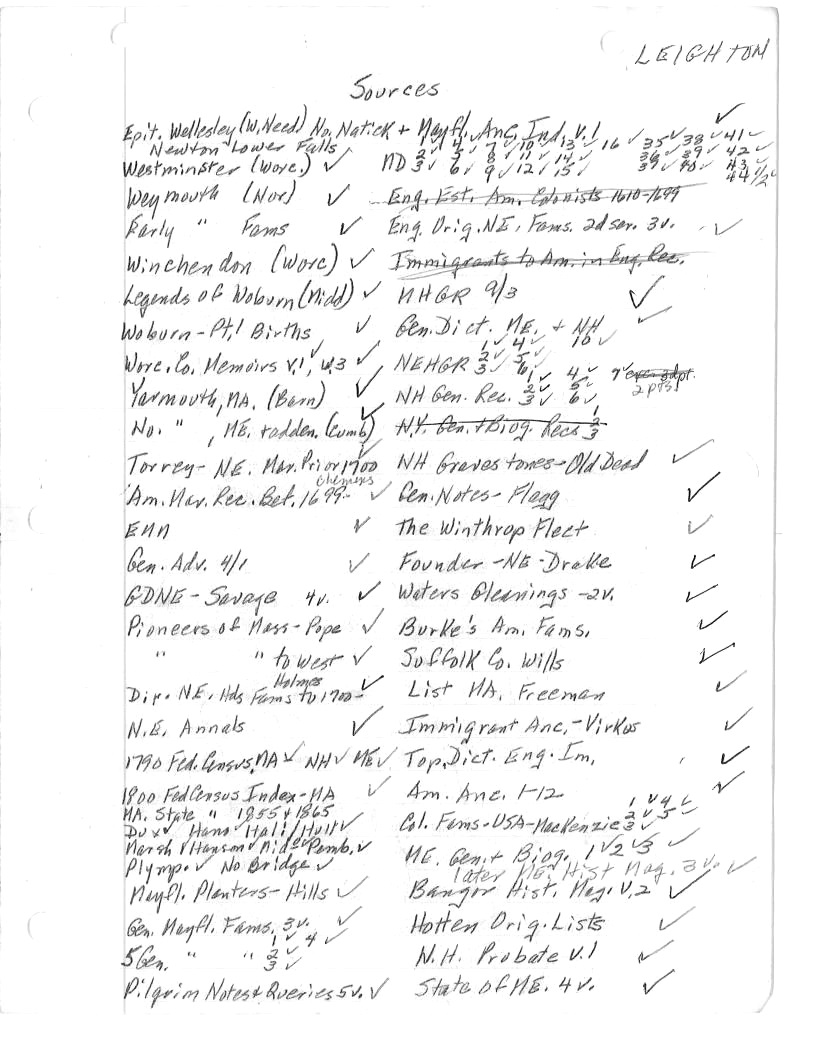 LEIGHTON
Sources
Epit. Wellesley (W. Need) No. Natick + Mayfl. Anc. Ind. V.1 ✓
Newton Lower Falls
Westminster (Worc.) ✓
MD 1✓ 4✓ 7✓ 10✓ 13✓ 16✓ 35✓ 38✓ 41✓
2✓ 5✓ 8✓ 11✓ 14✓ 36✓ 39✓ 42✓
3✓ 6✓ 9✓ 12✓ 15✓ 37✓ 40✓ 43✓
44 1/2✓
Weymouth (Nor) ✓
Early " Fams ✓
Winchendon (Worc) ✓
Legends of Woburn (Midd) ✓
Woburn - Pt. 1 Births ✓
Worc. Co. Memoirs V.1✓, V.3 ✓
Yarmouth, MA. (Barn) ✓
No. " , ME. + adden. (Cumb) ✓
Torrey - NE. Mar. Prior 1700 ✓
Clemens
Am. Mar. Rec. Bef. 1699 - ✓
EMM ✓
Gen. Adv. 4/1 ✓
GDNE - Savage 4v. ✓
Pioneers of Mass - Pope ✓
" " to West ✓
Holmes
Dir. N.E. Hds Fams to 1700 - ✓
N.E. Annals ✓
1790 Fed. Census, MA ✓ NH ✓ ME ✓
1800 Fed Census Index - MA ✓
MA. State " 1855 + 1865
Dux ✓ Hano ✓ Hali / Hull ✓
Marsh ✓ Hanson ✓ Mid ✓ Pemb. ✓
Plymp. ✓ No Bridge ✓
Mayfl. Planters - Hills ✓
Gen. Mayfl. Fams. 3v. ✓
5 Gen. " " 1✓ 4✓
2✓
3✓
Pilgrim Notes + Queries 5v. ✓
Eng. Est. Am. Colonists 1610-1699
Eng. Orig. NE. Fams. 2d ser. 3v. ✓
Immigrants to Am. in Eng. Rec.
MHGR 9/3 ✓
Gen. Dict. ME. + NH ✓
NEHGR 1✓ 4✓ 10✓
2✓ 5✓
3✓ 6✓
NH Gen. Rec. 1✓ 4✓ 7
2✓ 5✓ 2 pts.
3✓ 6✓
N.Y. Gen. + Biog. Recs 1
2
3
NH Gravestones - Old Dead ✓
Gen. Notes - Flagg ✓
The Winthrop Fleet ✓
Founder - NE - Drake ✓
Waters Gleanings - 2v. ✓
Burke's Am. Fams. ✓
Suffolk Co. Wills ✓
List MA. Freeman ✓
Immigrant Anc. - Virkus ✓
Top. Dict. Eng. Im. ✓
Am. Anc. 1-12 ✓
Col. Fams - USA - MacKenzie 1✓ 4✓
2✓ 5✓
3✓
ME. Gen. + Biog. 1✓ 2✓ 3✓
later ME. Hist Mag. 3v. ✓
Bangor Hist. Mag. V.2 ✓
Hotten Orig. Lists ✓
N.H. Probate V.1 ✓
State of ME. 4v. ✓